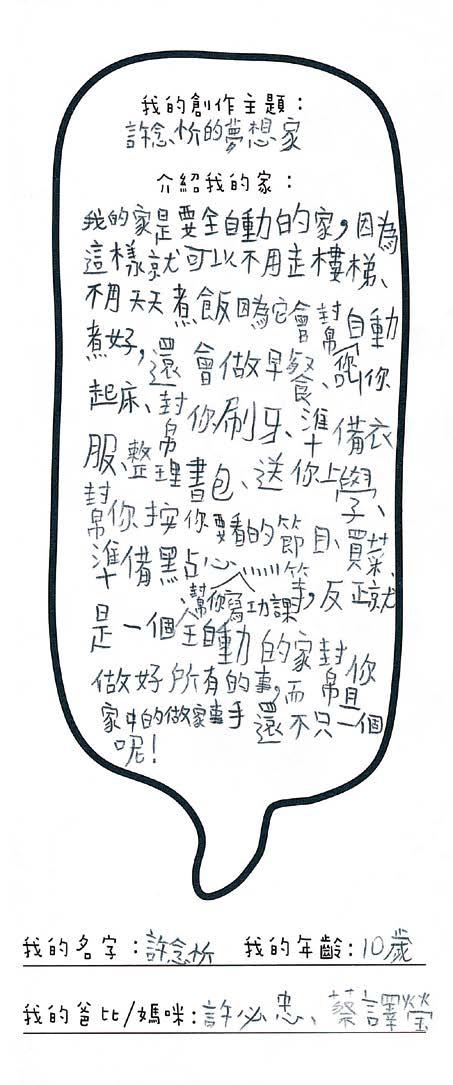 我的創作主題：
許念忻的夢想家
介紹我的家：
我的家是要全自動的家，因為
這樣就可以不用走樓梯、
不用天天煮飯因為它會幫你自動
煮好，還會做早餐、叫你
起床、幫你刷牙、準備衣
服、整理書包、送你上學、
幫你按你要看的節目、買菜
準備點心、幫你寫功課……等，反正就
是一個全自動的家幫你
做好所有的事，而且
家中的做家事手還不只一個
呢！
我的名字：許念忻 我的年齡：10歲
我的爸比/媽咪：許必忠、蔡譯瑩